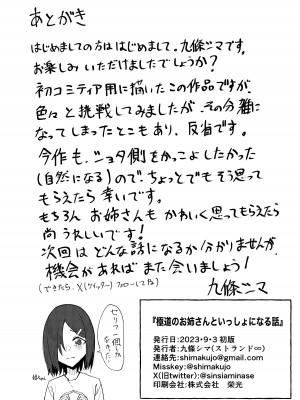 あとがき
はじめましての方は はじめまして。九條シマです。
お楽しみ いただけましたでしょうか?
初コミティア用に描いたこの作品ですが、
色々と挑戦してみましたが、その分雑に
なってしまったとこもあり、反省です。
今作も、ショタ側をかっこよしたかった
(自然になる)ので、ちょっとでも そう思って
もらえたら 幸いです。
もちろん お姉さんも かわいく思ってもらえたら
尚 うれしいです!
次回は どんな話になるか分かりませんが、
機会があれば また会いましょう!
(できたら、X(ツイッター) フォローしてね)
九條シマ
セリフ一個しか
なかった…
『極道のお姉さんといっしょになる話』
発行日:2023・9・3 初版
発行者:九條シマ(ストランド∞)
連絡先:shimakujo@gmail.com
Misskey:@shimakujo
X(旧twitter):@sinsiaminase
印刷会社:株式会社 栄光